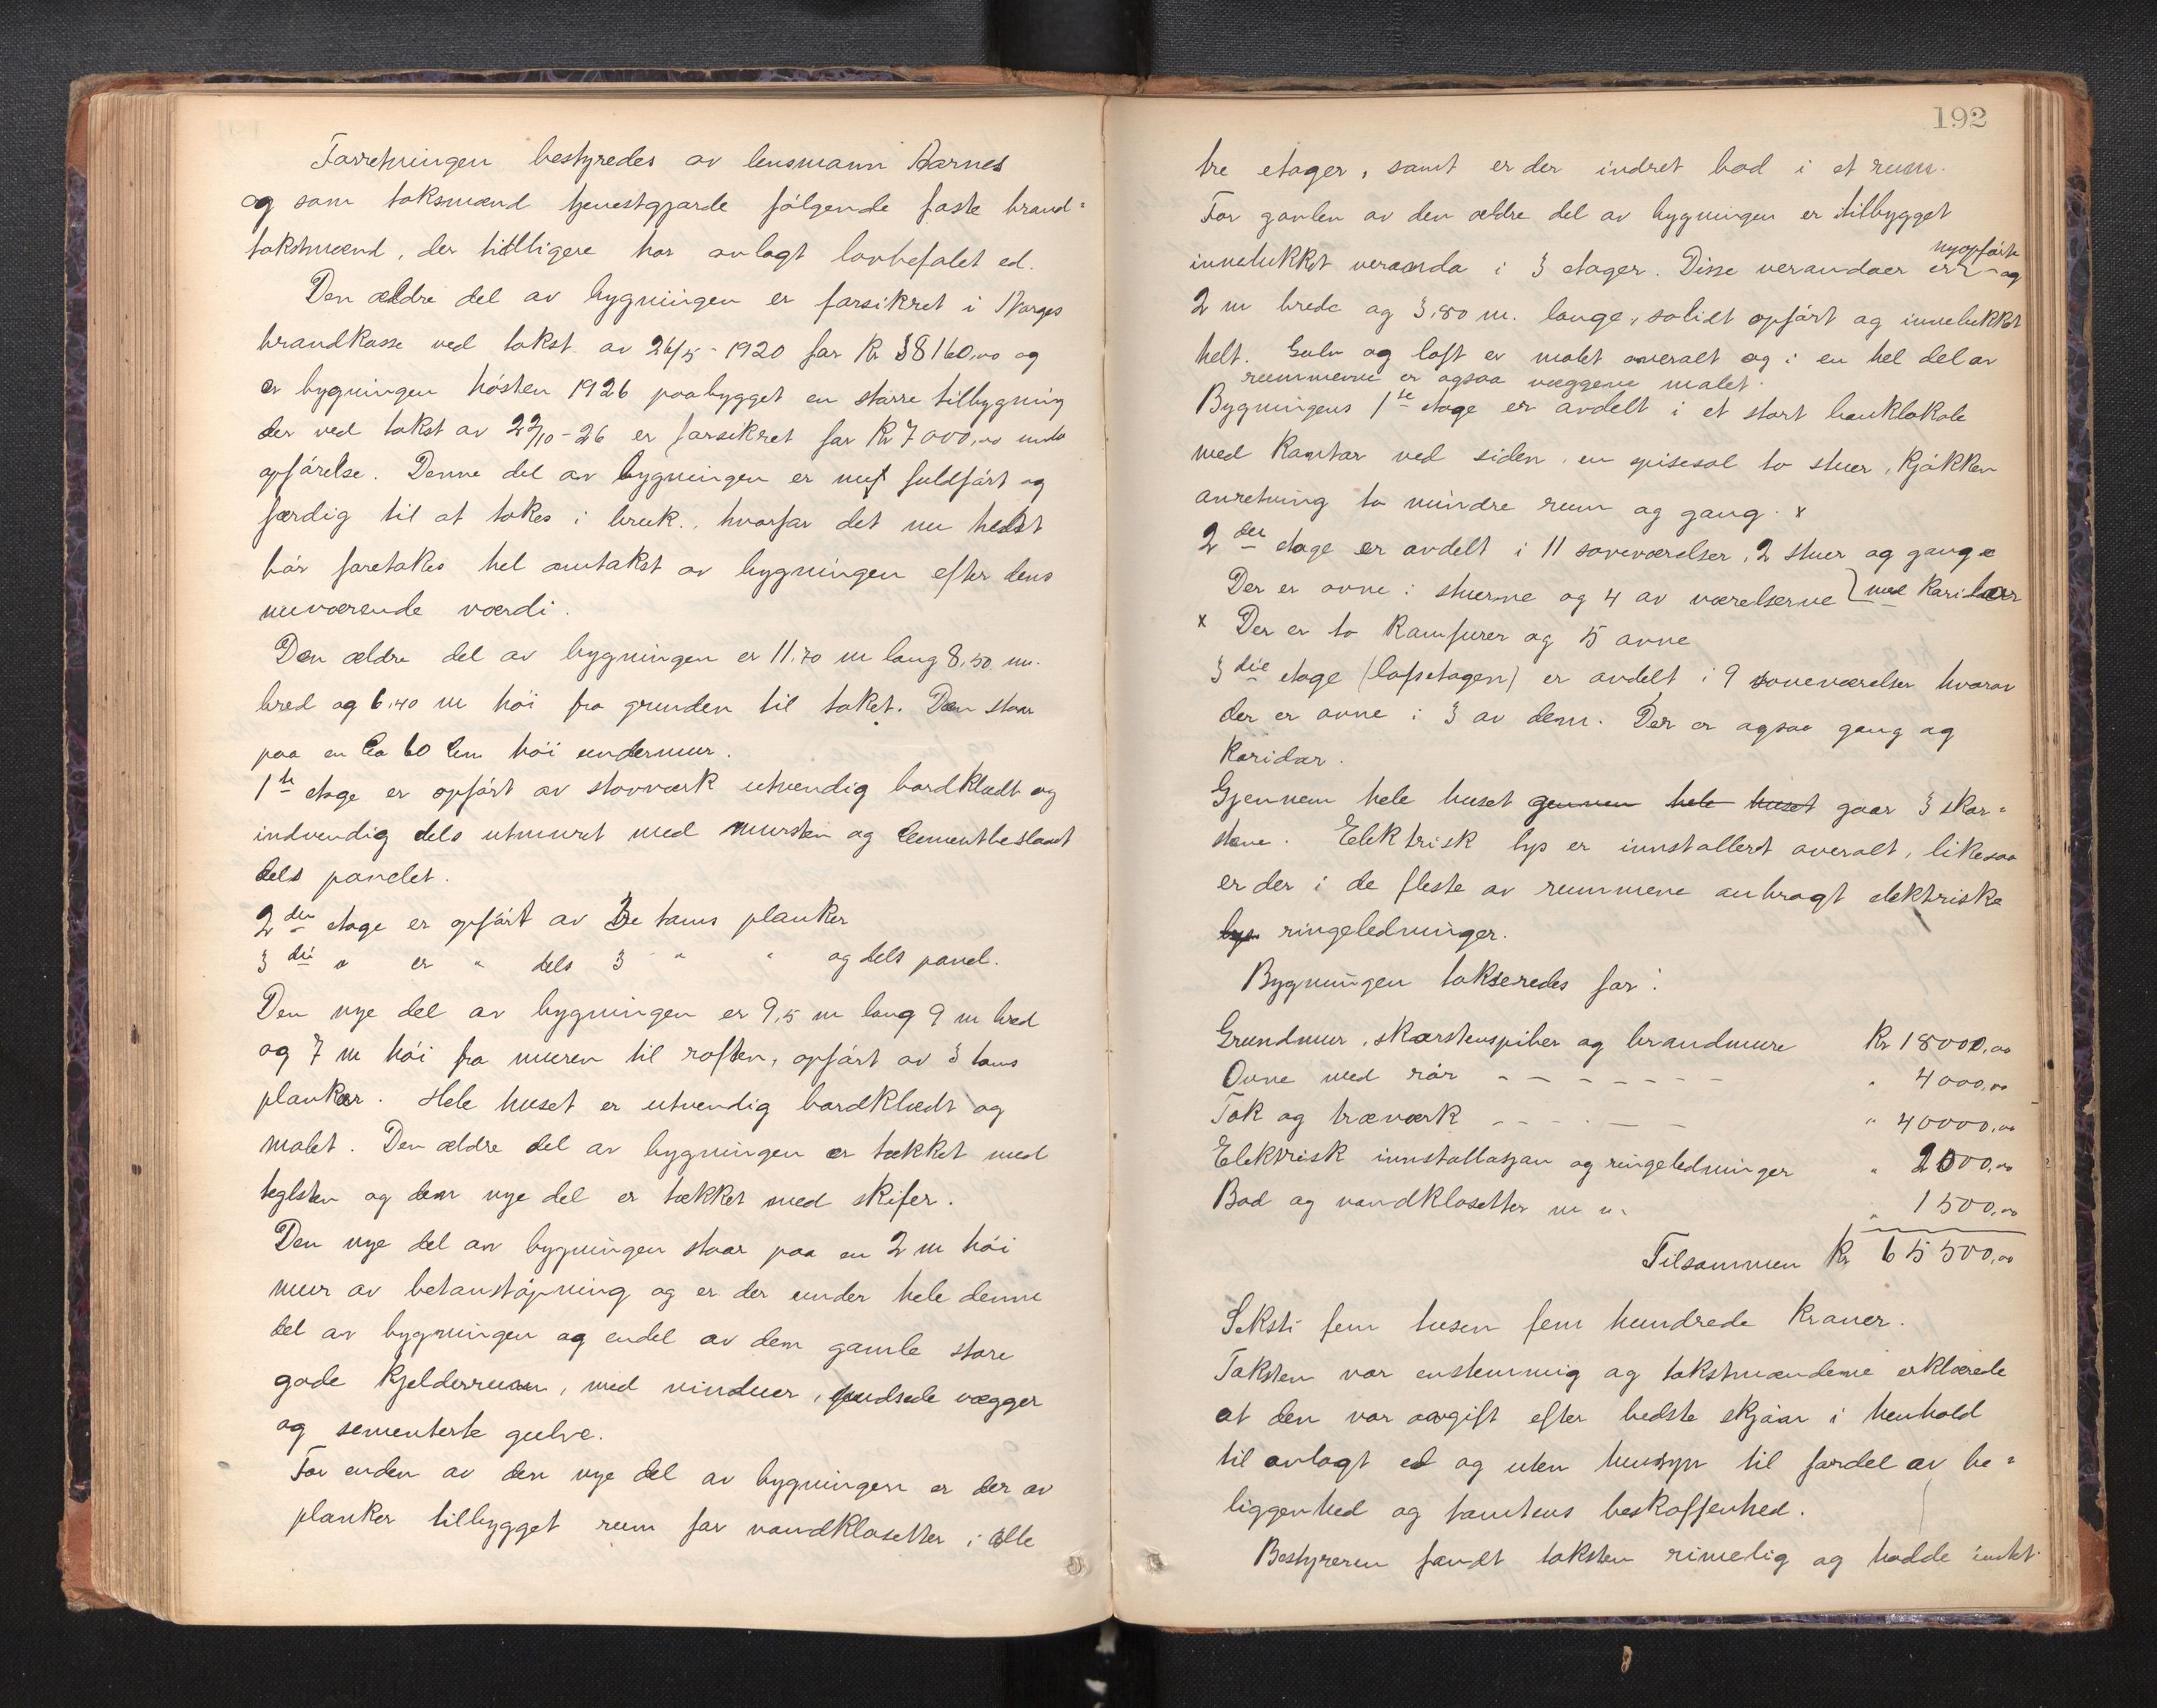 Forretningen bestyredes av lensmann Aarnes
og som taksmænd tjenestgjorde følgende faste brand=
takstmænd, der tidligere har avlagt lovbefalet ed.
Den ældre del av bygningen er forsikret i Norges
brandkasse ved takst av 26/5 - 1920 for Kr 38160,00 og
er bygningen høsten 1926 paabygget en større tilbygning
der ved takst av 22/10 - 26 er forsikret for Kr 7000,00 under
opførelse. Denne del av bygningen er nu fuldført og
færdig til at takes i bruk, hvorfor det nu helst
bør foretakes hel omtakst av bygningen efter dens
nuværende værdi.
Den ældre del av bygningen er 11.70 m lang 8,50 m.
bred og 6.40 m høi fra grunden til taket. Den staar
paa en Ca 60 Cm høi undermur.
1ste etage er opført av stavværk utvendig bordklædt og
indvendig dels utmuret med mursten og Cementbeslaaet
dels panelet.
2den etage er opført av 3 toms planker
3die " er " dels 3 " " og dels panel.
Den nye del av bygningen er 9,5 m lang 9 m bred
og 7 m høi fra muren til roften, opført av 3 toms
planker. Hele huset er utvendig bordklædt og
malet. Den ældre del av bygningen er tækket med
teglsten og den nye del er tækket med skifer.
Den nye del av bygningen staar paa en 2 m høi
mur av betonstøpning og er der under hele denne
del av bygningen og endel av den gamle store
gode kjelderrum, med vinduer, pudsede vægger
og sementerte gulve.
For enden av den nye del av bygningen er der av
planker tilbygget rum for vandklosetter i alle
192
tre etager, samt er der indret bad i et rum.
For gavlen av den ældre del av bygningen er tilbygget
nyopførte
innelukket veranda i 3 etager. Disse verandaer er og
2 m brede og 3,80 m. lange, solidt opført og innelukket
helt. Gulv og loft er malet overalt og i en hel del av
rummerne er ogsaa væggene malet.
Bygningens 1ste etage er avdelt i et stort banklokale
med kontor ved siden, en spisesal to stuer, kjøkken
anretning to mindre rum og gang. x
2den etage er avdelt i 11 soveværelser, 2 stuer og gange
Der er ovne i stuerne og 4 av værelserne med koridorer
x Der er to kamfurer og 5 ovne
3die etage (loftsetagen) er avdelt i 9 soveværelser hvorav
der er ovne i 3 av dem. Der er ogsaa gang og
koridor.
Gjennem hele huset gennem hele huset gaar 3 skor=
stene. Elektrisk lys er innstallert overalt, likesaa
er der i de fleste av rummene anbragt elektriske
lys ringeledninger.
Bygningen takseredes for:
Grundmur, skorstenspiber og brandmure Kr 18000,00
Ovne med rør - - - - - - - " 4000,00
Tak og træværk - - - - - - " 40000,00
Elektrisk innstallasjon og ringeledninger " 2000,00
Bad og vandklosetter m m. " 1500,00
Tilsammen Kr 65500,00
Seksti fem tusen fem hundrede kroner.
Taksten var enstemmig og takstmændene erklærede
at den var avgift efter bedste skjøn i henhold
til avlagt ed og uten hensyn til fordel av be=
liggenhed og tomtens beskaffenhed.
Bestyreren fandt taksten rimelig og hadde intet